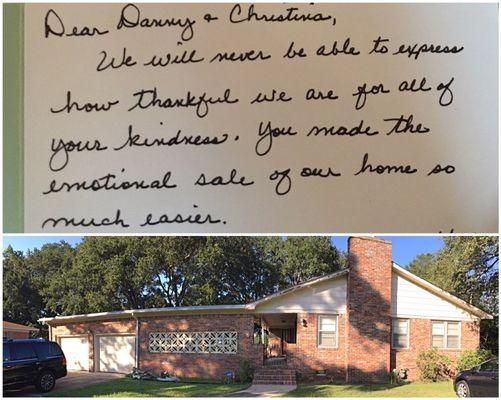 Dear Danny & Christina,
We will never be able to express
how thankful we are for all of
your kindness. You made the
emotional sale of our home so
much easier.